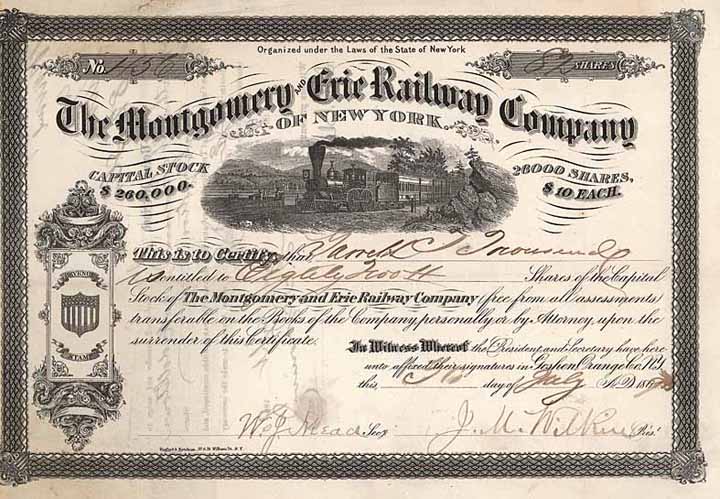 Organized under the Laws of the State of New York
No. 156
82 SHARES
The Montgomery AND Erie Railway Company
OF NEW YORK
CAPITAL STOCK $260,000.
26000 SHARES, $10 EACH.
This is to Certify, that Townsend
is entitled to Eighty two Shares of the Capital
Stock of The Montgomery and Erie Railway Company (free from all assessments)
transferable on the Books of the Company, personally or by Attorney, upon the
surrender of this Certificate.
In Witness Whereof the President and Secretary have here
unto affixed their signatures in Goshen Orange Co. N.Y.
this day of July A.D. 186
REVENUE
STAMP
W. J. Mead Secy.
J. M. Wilkin Pres.